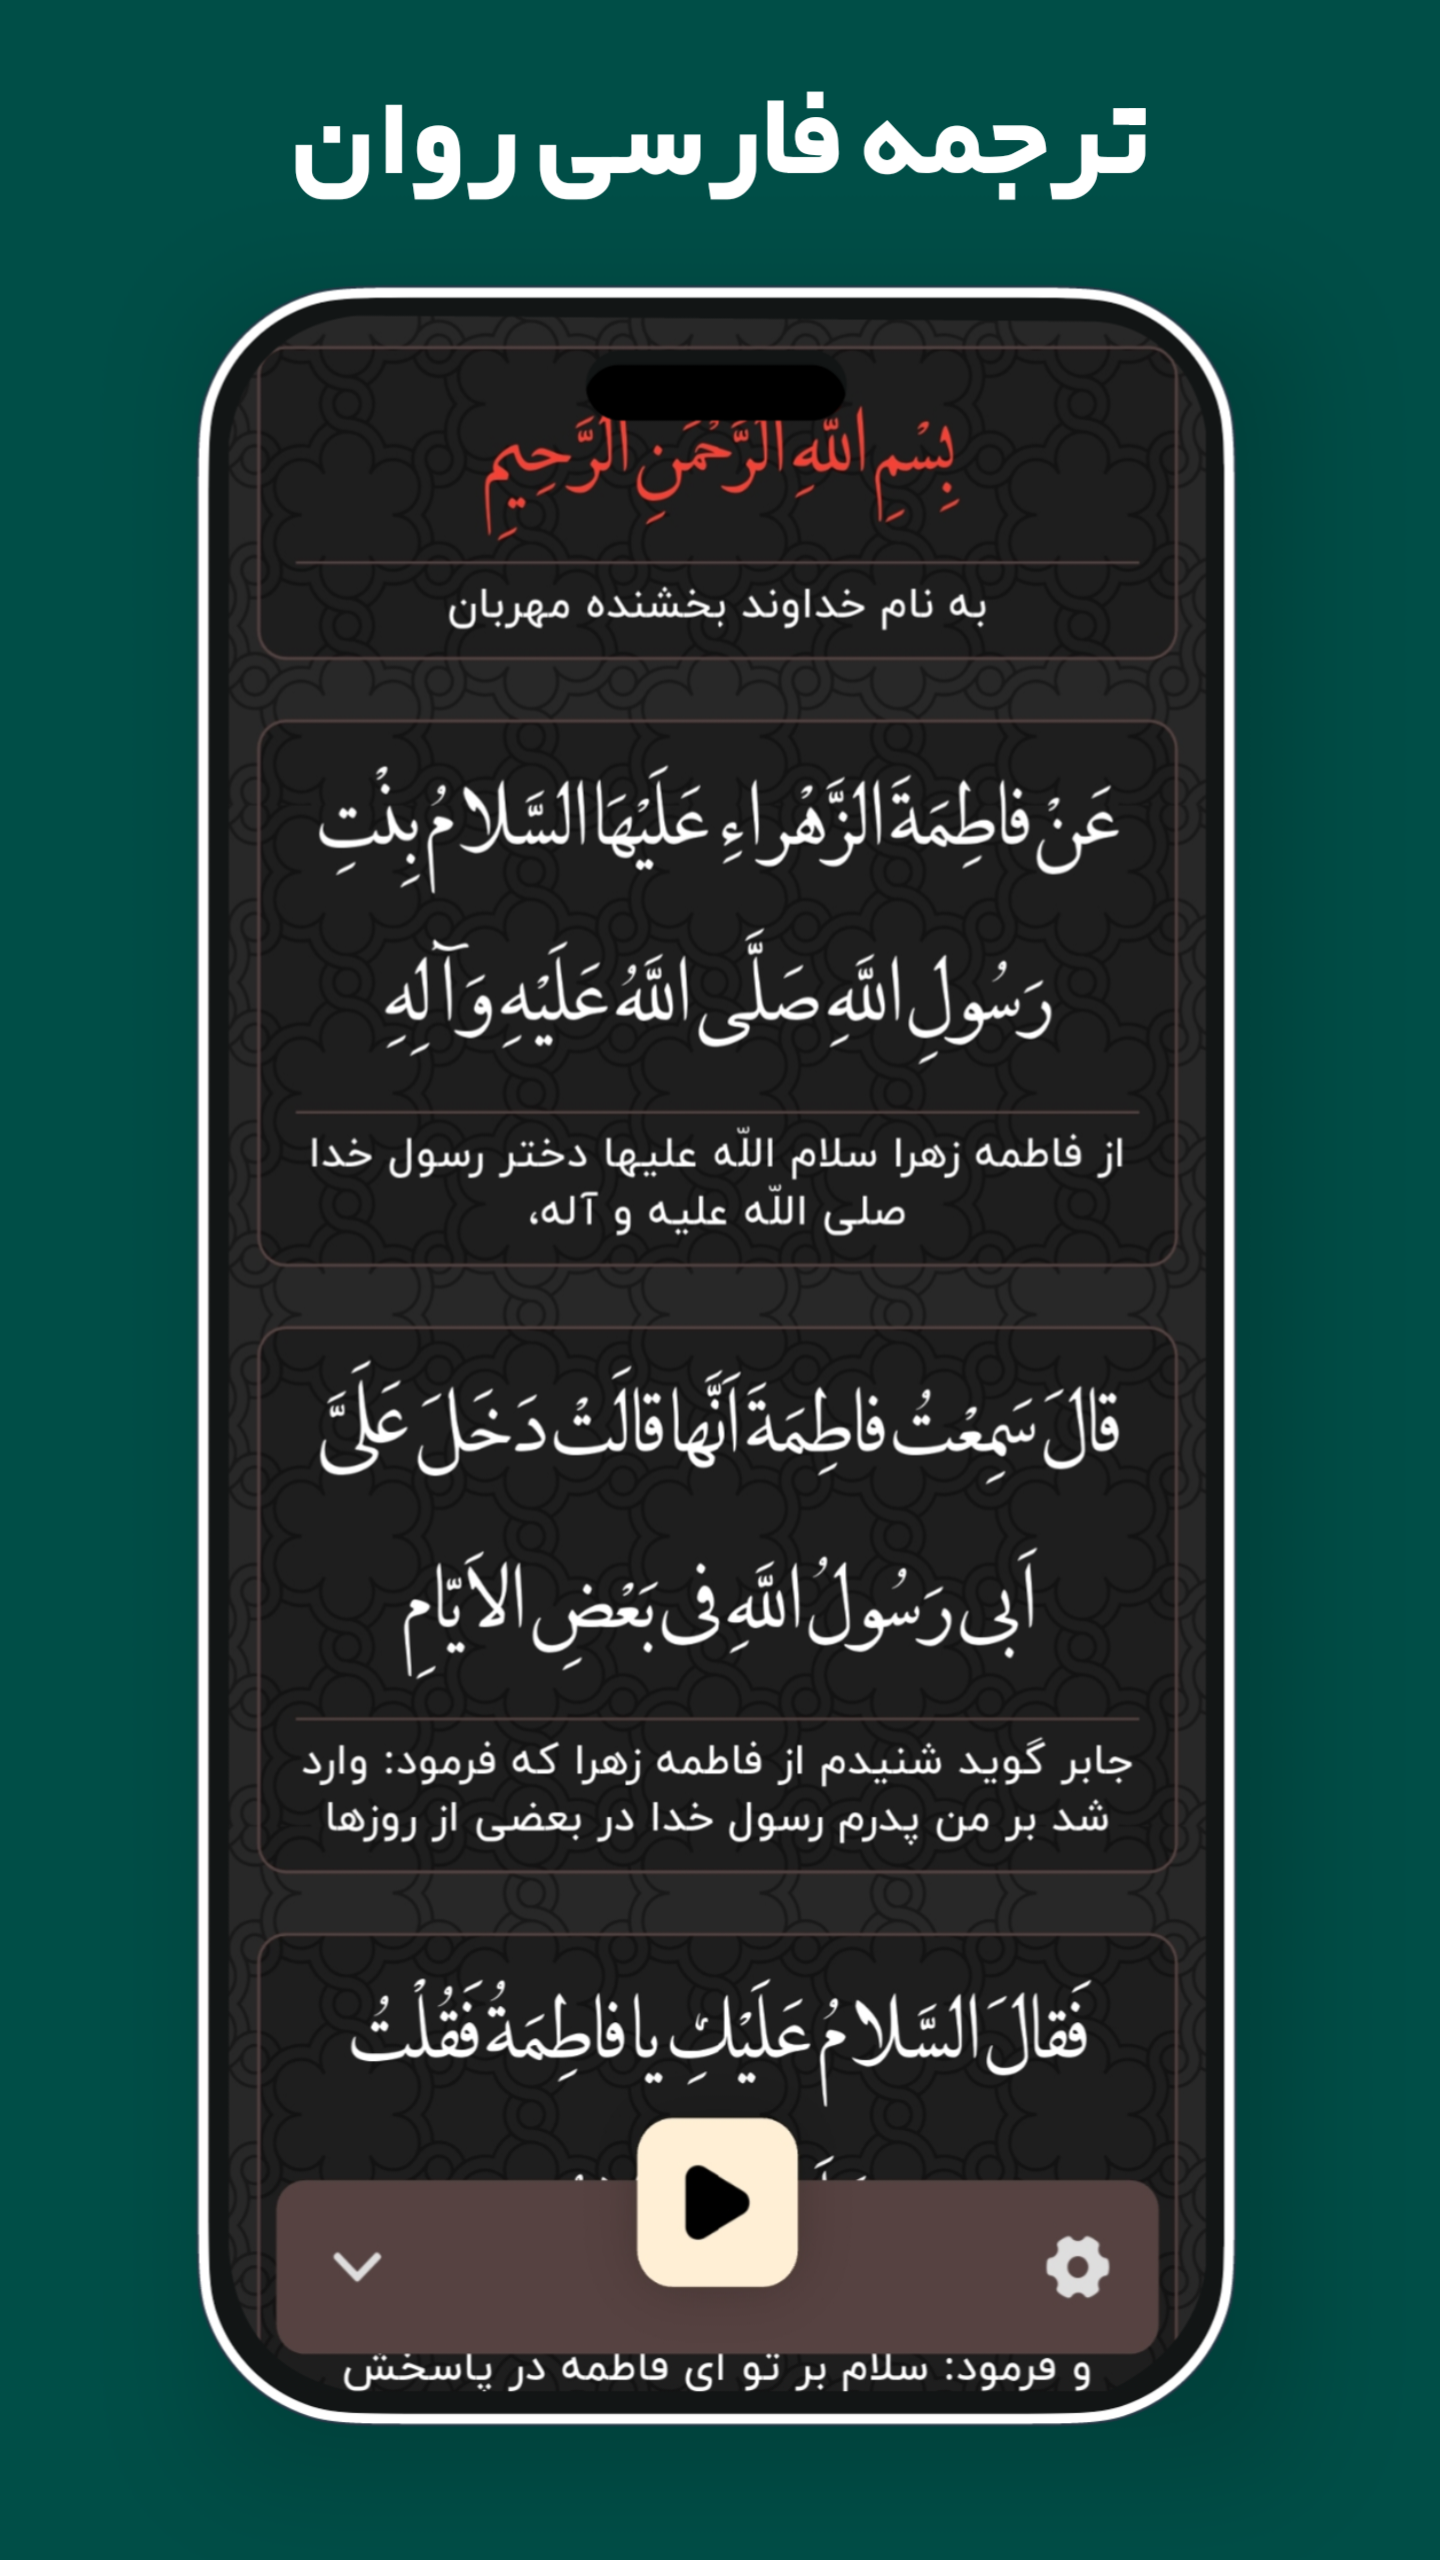 ترجمه فارسی روان
بِسْمِ اللهِ الرَّحْمَنِ الرَّحِيمِ
به نام خداوند بخشنده مهربان
عَنْ فاطِمَةَ الزَّهْراءِ عَلَيْهَا السَّلامُ بِنْتِ
رَسُولِ اللَّهِ صَلَّى اللَّهُ عَلَيْهِ وَ آلِهِ
از فاطمه زهرا سلام اللّه علیها دختر رسول خدا
صلی اللّه علیه و آله،
قالَ سَمِعْتُ فاطِمَةَ اَنَّها قالَتْ دَخَلَ عَلَىَّ
اَبى رَسُولُ اللَّهِ فى بَعْضِ الاَيّامِ
جابر گوید شنیدم از فاطمه زهرا که فرمود: وارد
شد بر من پدرم رسول خدا در بعضی از روزها
فَقالَ السَّلامُ عَلَيْكِ يا فاطِمَةُ فَقُلْتُ
و فرمود: سلام بر تو ای فاطمه در پاسخش